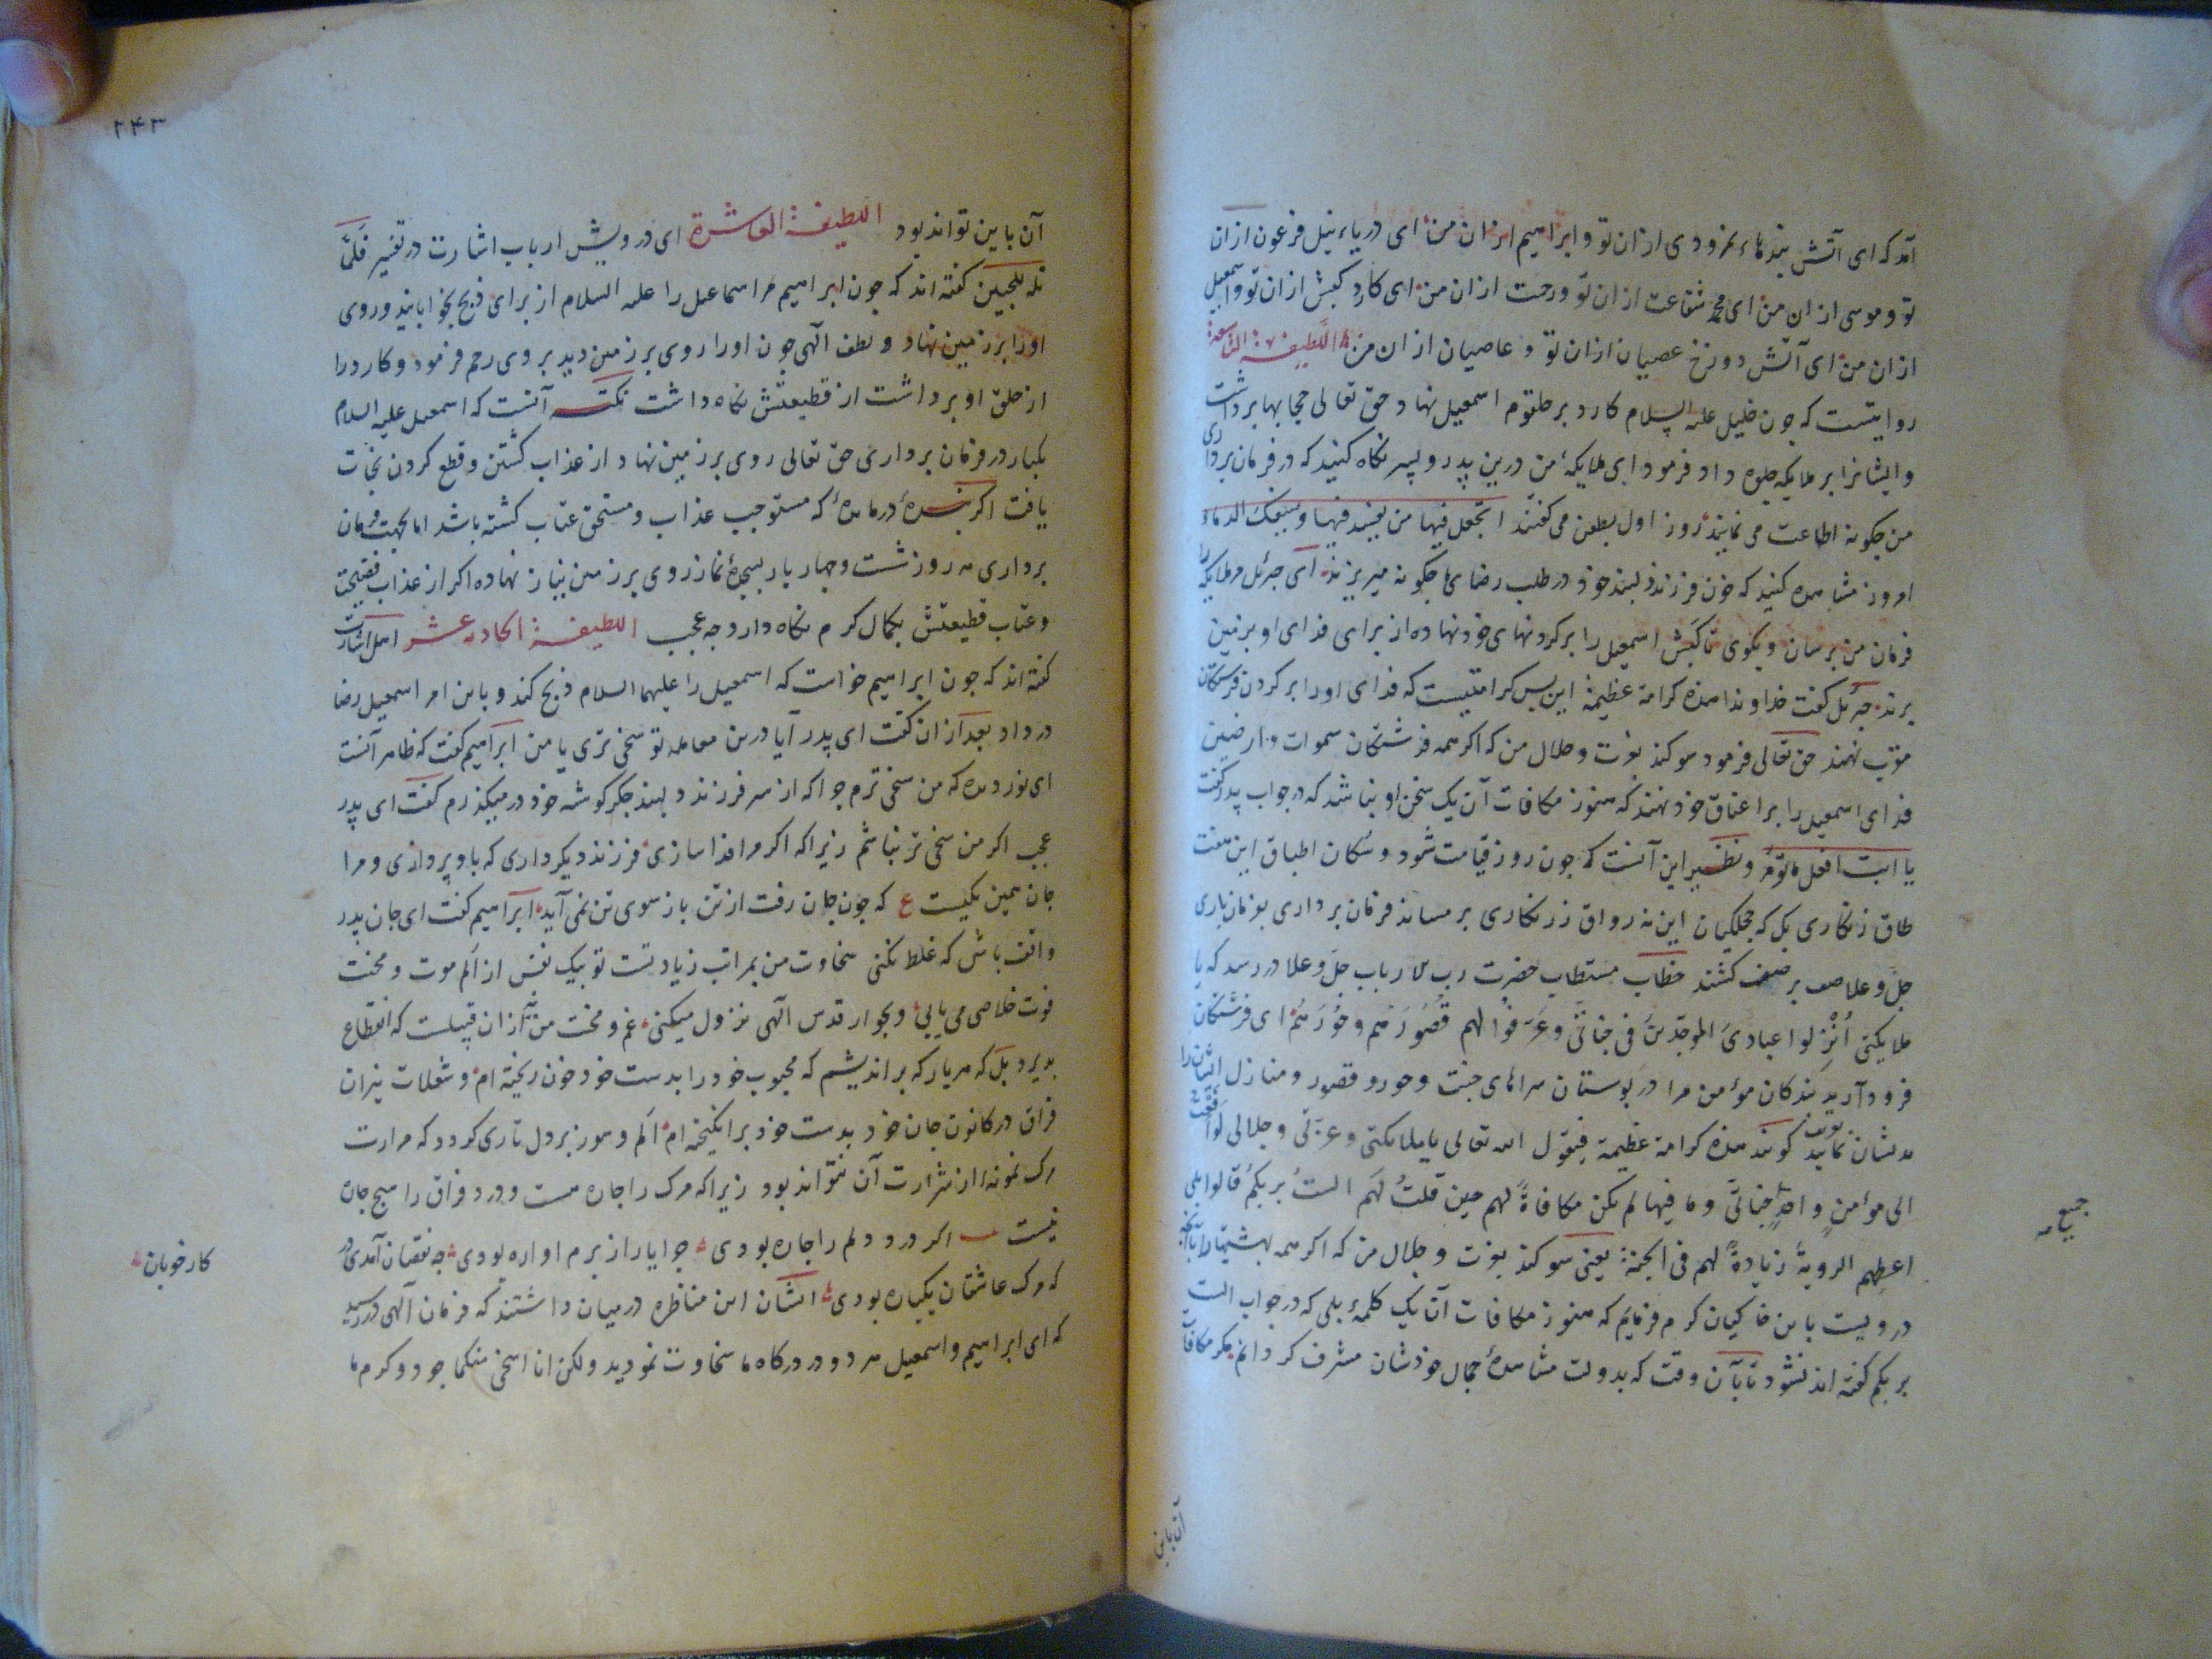 آمد که ای آتش بندهاء نمرودی ازان تو و ابراهیم ازان من ای دریاء نیل فرعون ازان
تو و موسی ازان من ای محمد شفاعت ازان تو و رحمت ازان من ای کارد کبش ازان تو و اسمعیل
ازان من ای آتش دوزخ عصیان ازان تو و عاصیان ازان من اللطیفة التاسعة
روایتست که جون خلیل علیه السلام کارد بر حلقوم اسمعیل نهاد حق تعالی حجابها برداشت
وایشانرا بر ملایکه جلوه داد فرمود ای ملایکهٔ من درین پدر و پسر نکاه کنید که در فرمان برداری
من جکونه اطاعت می نمایند روز اول بطعن می کفتند اتجعل فیها من یفسد فیها ویسفک الدماء
امروز مشاهده کنید که خون فرزند دلبند خود در طلب رضای ما جکونه میریزند ای جبرئیل مر ملایکه را
فرمان من برسان و بکوی تا کبش اسمعیل را بر کردنهای خود نهاده از برای فدای او بزمین
برند جبرئیل کفت خداوندا هذه کرامة عظیمة این بس کرامتیست که فدای او را بر کردن فرشتکان
مقرب نهند حق تعالی فرمود سوکند بعزت و جلال من که اکر همه فرشتکان سموات و ارضین
فدای اسمعیل را بر اعناق خود نهند که هنوز مکافات آن یک سخن او نباشد که در جواب پدر کفت
یا ابت افعل ما تؤمر و نظیر این آنست که جون روز قیامت شود و سکان اطباق این هفت
طاق زنکاری بل که جملکیان این نه رواق زرنکاری بر مساند فرمان برداری بفرمان باری
جل وعلا صف بر صف کشند خطاب مستطاب حضرت رب الارباب جل وعلا در رسد که یا
ملایکتی أنزلوا عبادی الموحدین فی جناتی وعرفوا لهم قصورهم وحورهم ای فرشتکان
فرود آرید بندکان مؤمن مرا در بوستان سراهای جنت و حور و قصور و منازل ایشان را
بدیشان نمایید کویند هذه کرامة عظیمة فیقول الله تعالی یا ملایکتی وعزتی وجلالی لو دفعت
الی مؤمن واحد جناتی وما فیها لم یکن مکافاة لهم حین قلت لهم الست بربکم قالوا بلی
اعطهم الرویة زیادة لهم فی الجنة یعنی سوکند بعزت و جلال من که اکر همه بهشتها را بآنچه
دروست باین خاکیان کرم فرمایم که هنوز مکافات آن یک کلمهٔ بلی که در جواب الست
بربکم کفته اند نشود تا بآن وقت که بدولت مشاهدهٔ جمال خودشان مشرف کردانم مکر مکافات
جمیع
آن باین
۲۴۳
آن باین تواند بود اللطیفة العاشرة ای درویش ارباب اشارت در تفسیر فلما
تله للجبین کفته اند که جون ابراهیم مر اسماعیل را علیه السلام از برای ذبح بخوابانید و روی
او را بر زمین نهاد و لطف الهی جون او را روی بر زمین دید بر وی رحم فرمود و کارد را
از حلق او برداشت از قطیعتش نکاه داشت نکته آنست که اسمعیل علیه السلام
یکبار در فرمان برداری حق تعالی روی بر زمین نهاد از عذاب کشتن و قطع کردن نجات
یافت اکر بندهٔ درماندهٔ که مستوجب عذاب و مستحق عتاب کشته باشد اما بجهت فرمان
برداری هر روز شست و جهار بار بسجدهٔ نماز روی بر زمین نیاز نهاده اکر از عذاب فضیحت
و عتاب قطیعتش بکمال کرم نکاه دارد جه عجب اللطیفة الحادیه عشر اهل اشارت
کفته اند که جون ابراهیم خواست که اسمعیل را علیهما السلام ذبح کند و باین امر اسمعیل رضا
در داد بعد ازان کفت ای پدر آیا درین معامله تو سخی تری یا من ابراهیم کفت که ظاهر آنست
ای نور دیده که من سخی ترم جرا که از سر فرزند دلبند جکر کوشهٔ خود در میکذرم کفت ای پدر
عجب اکر من سخی تر نباشم زیرا که اکر مرا فدا سازی فرزند دیکر داری که باو پردازی و مرا
جان همین یکیست ع که جون جان رفت از تن باز سوی تن نمی آید ابراهیم کفت ای جان پدر
واقف باش که غلط نکنی سخاوت من بمراتب زیادتست تو بیک نفس از الم موت و محنت
فوت خلاصی می یابی و بجوار قدس الهی نزول میکنی غم و محنت من ازان قبیلست که انقطاع
پذیرد بل که هر بار که براندیشم که محبوب خود را بدست خود خون ریخته ام و شعلات نیران
فراق در کانون جان خود بدست خود برانکیخته ام الم و سوز بر دل تاری کردد که مرارت
مرک نمونه از شرارت آن نتواند بود زیرا که مرک را جاره هست و درد فراق را هیج جاره
نیست اکر درد دلم را جاره بودی جرا یار از برم آواره بودی جه نقصان آمدی در
کار خوبان
که مرک عاشقان یکباره بودی ایشان این مناظره در میان داشتند که فرمان الهی در رسید
که ای ابراهیم و اسمعیل هر دو در درکاه ما سخاوت نمودید ولکن انا اسخی منکما جود و کرم ما